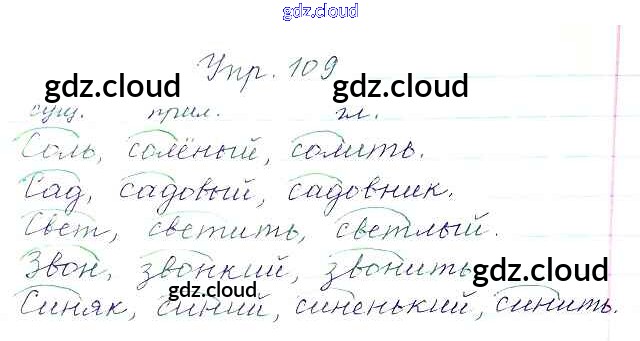 gdz.cloud
Упр. 109
gdz.cloud gdz.cloud
сущ. прил. гл.
Соль, солёный, солить.
Сад, садовый, садовник.
Свет, светить, светлый.
Звон, звонкий, звонить.
gdz.cloud
gdz.cloud
Синяк, синий, синенький, синить.